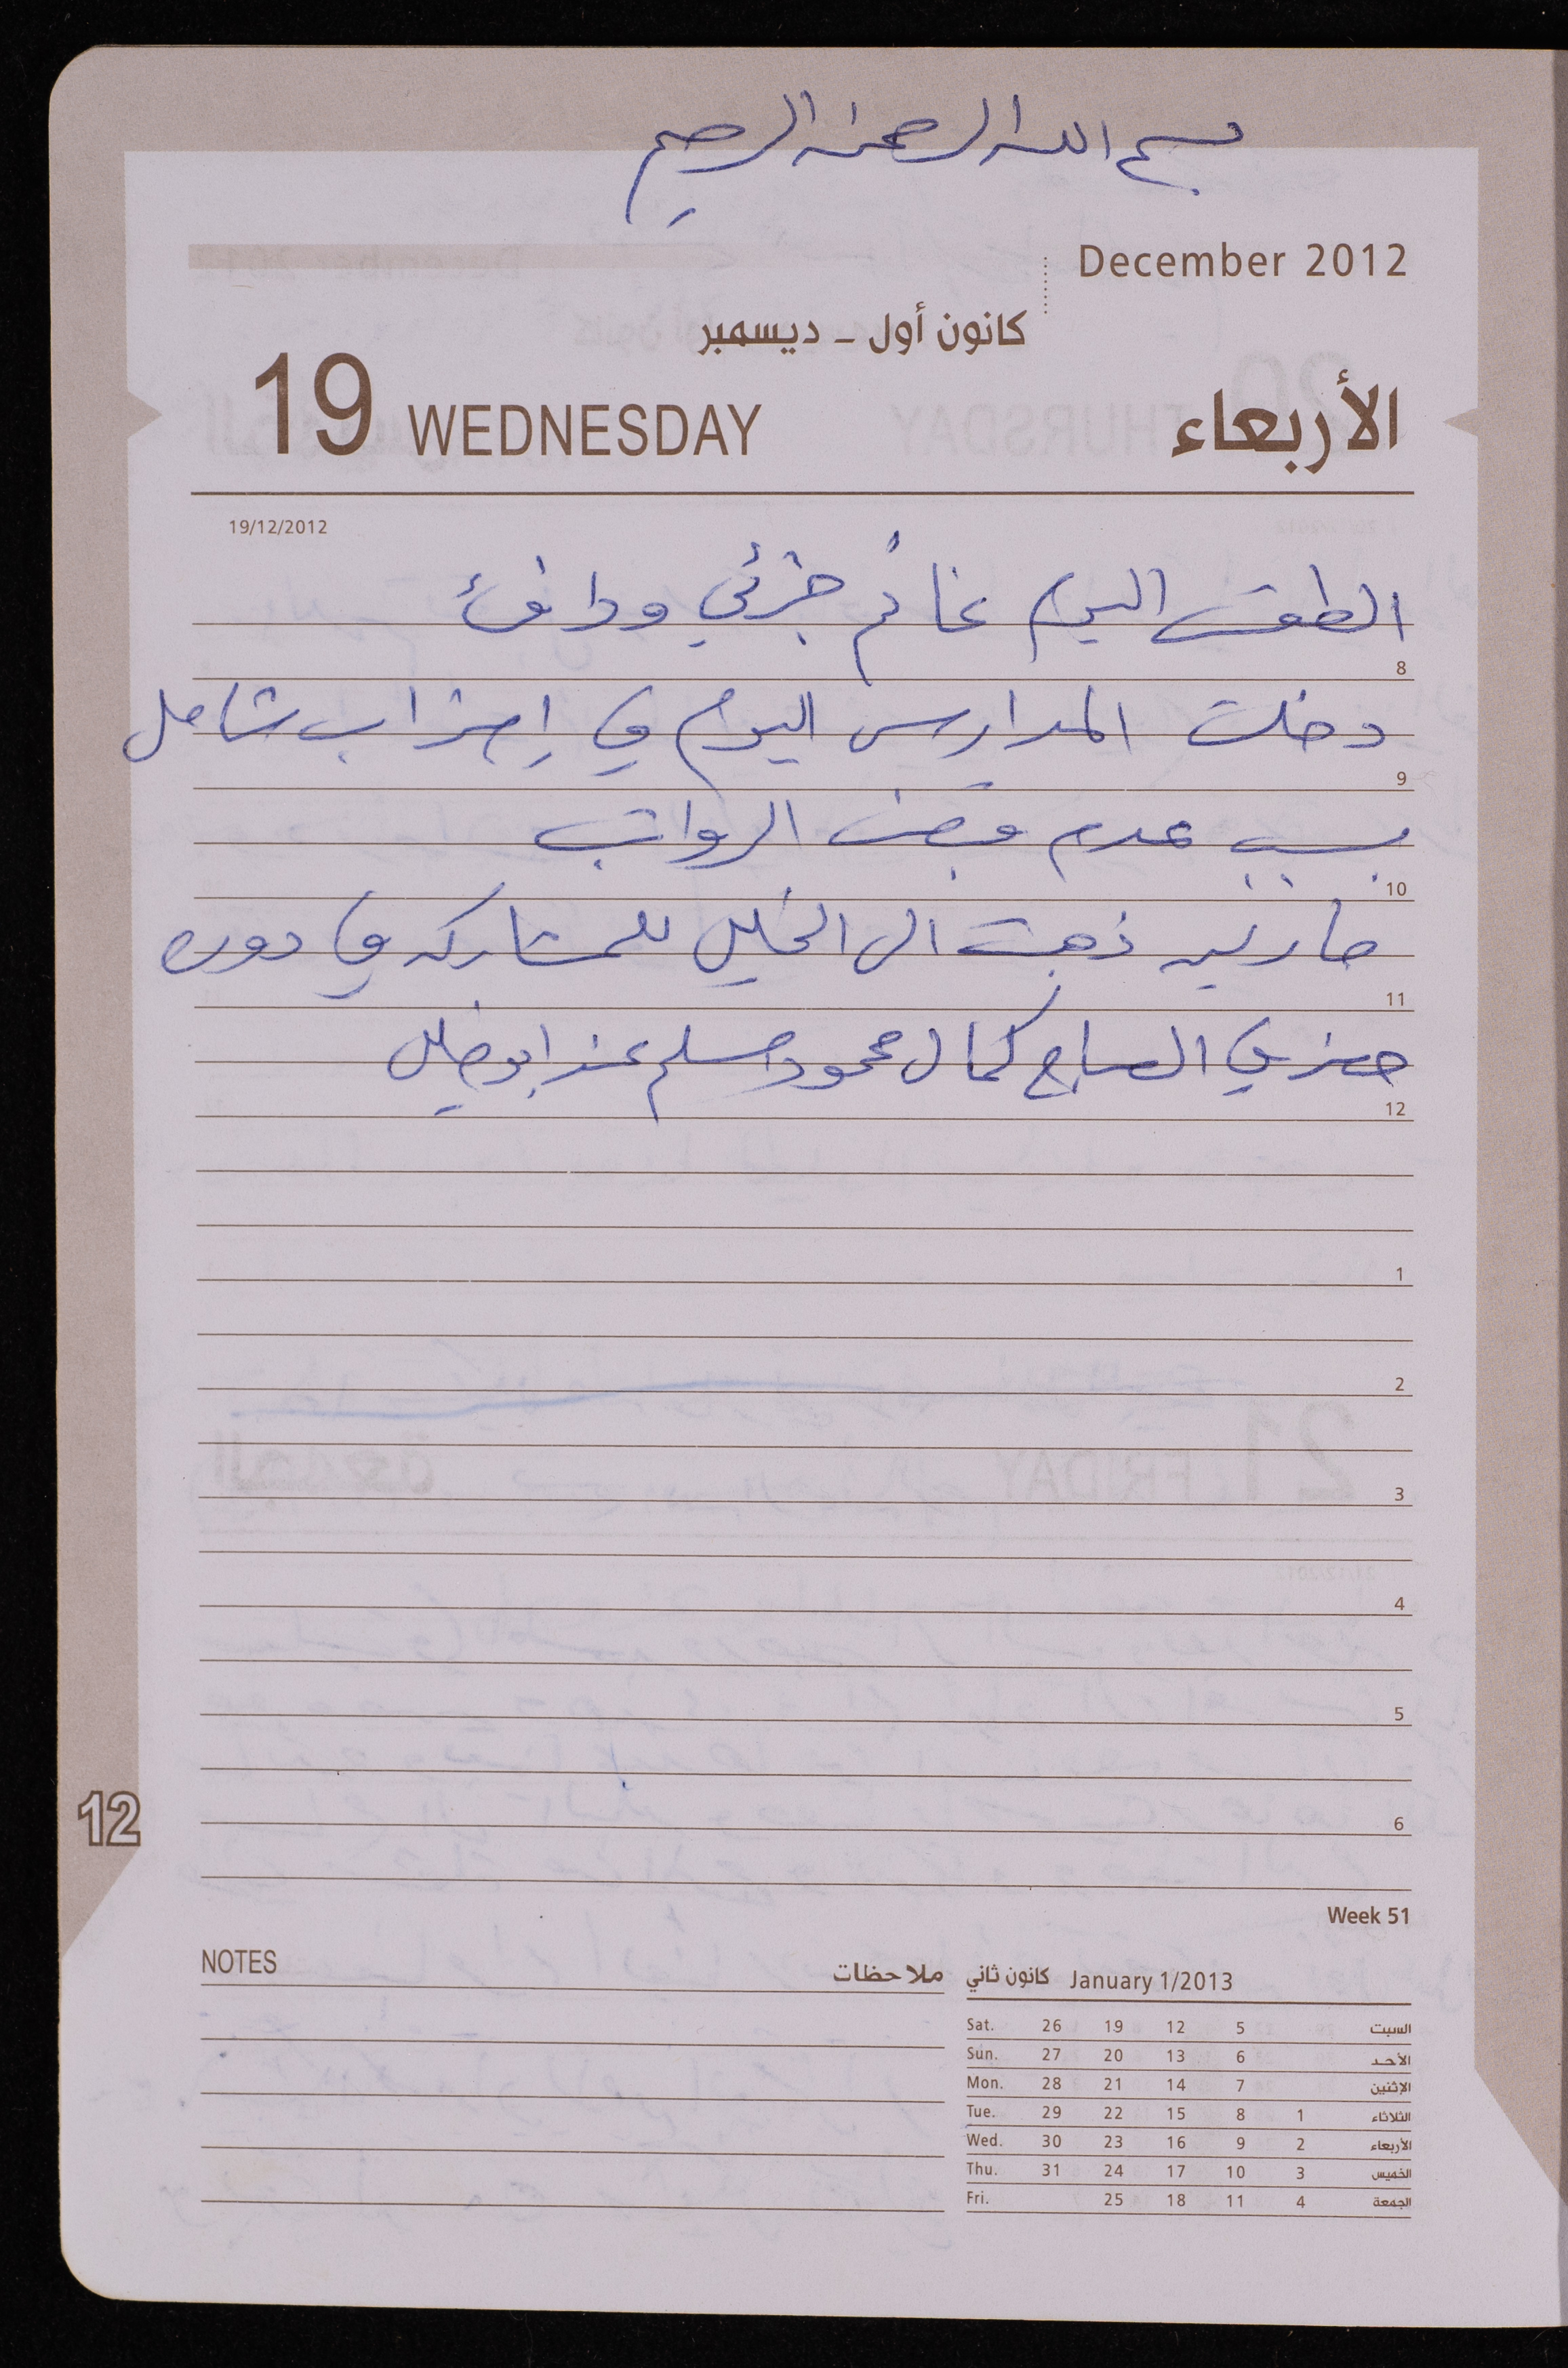 بسم الله الرحمن الرحيم
December 2012
كانون أول - ديسمبر
19 WEDNESDAY الأربعاء
19/12/2012
الطقس اليوم غائم جزئي ودافئ
8
دخلت المدارس اليوم في إضراب شامل
9
بسبب عدم قبض الرواتب
10
مارليه ذهبت الى الخليل للمشاركه في دوره
11
حضر الصباح كمال محمود مسلم عند ابو خليل
12
1
2
3
4
5
6
12
Week 51
NOTES ملاحظات
كانون ثاني January 1/2013
Sat. 26 19 12 5 السبت
Sun. 27 20 13 6 الأحد
Mon. 28 21 14 7 الإثنين
Tue. 29 22 15 8 1 الثلاثاء
Wed. 30 23 16 9 2 الأربعاء
Thu. 31 24 17 10 3 الخميس
Fri. 25 18 11 4 الجمعة